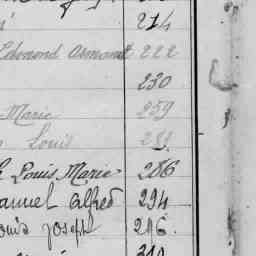 214
Edmond Osmont 222
230
Marie 259
Louis 282
Louis Marie 286
Alfred 294
Louis Joseph 296